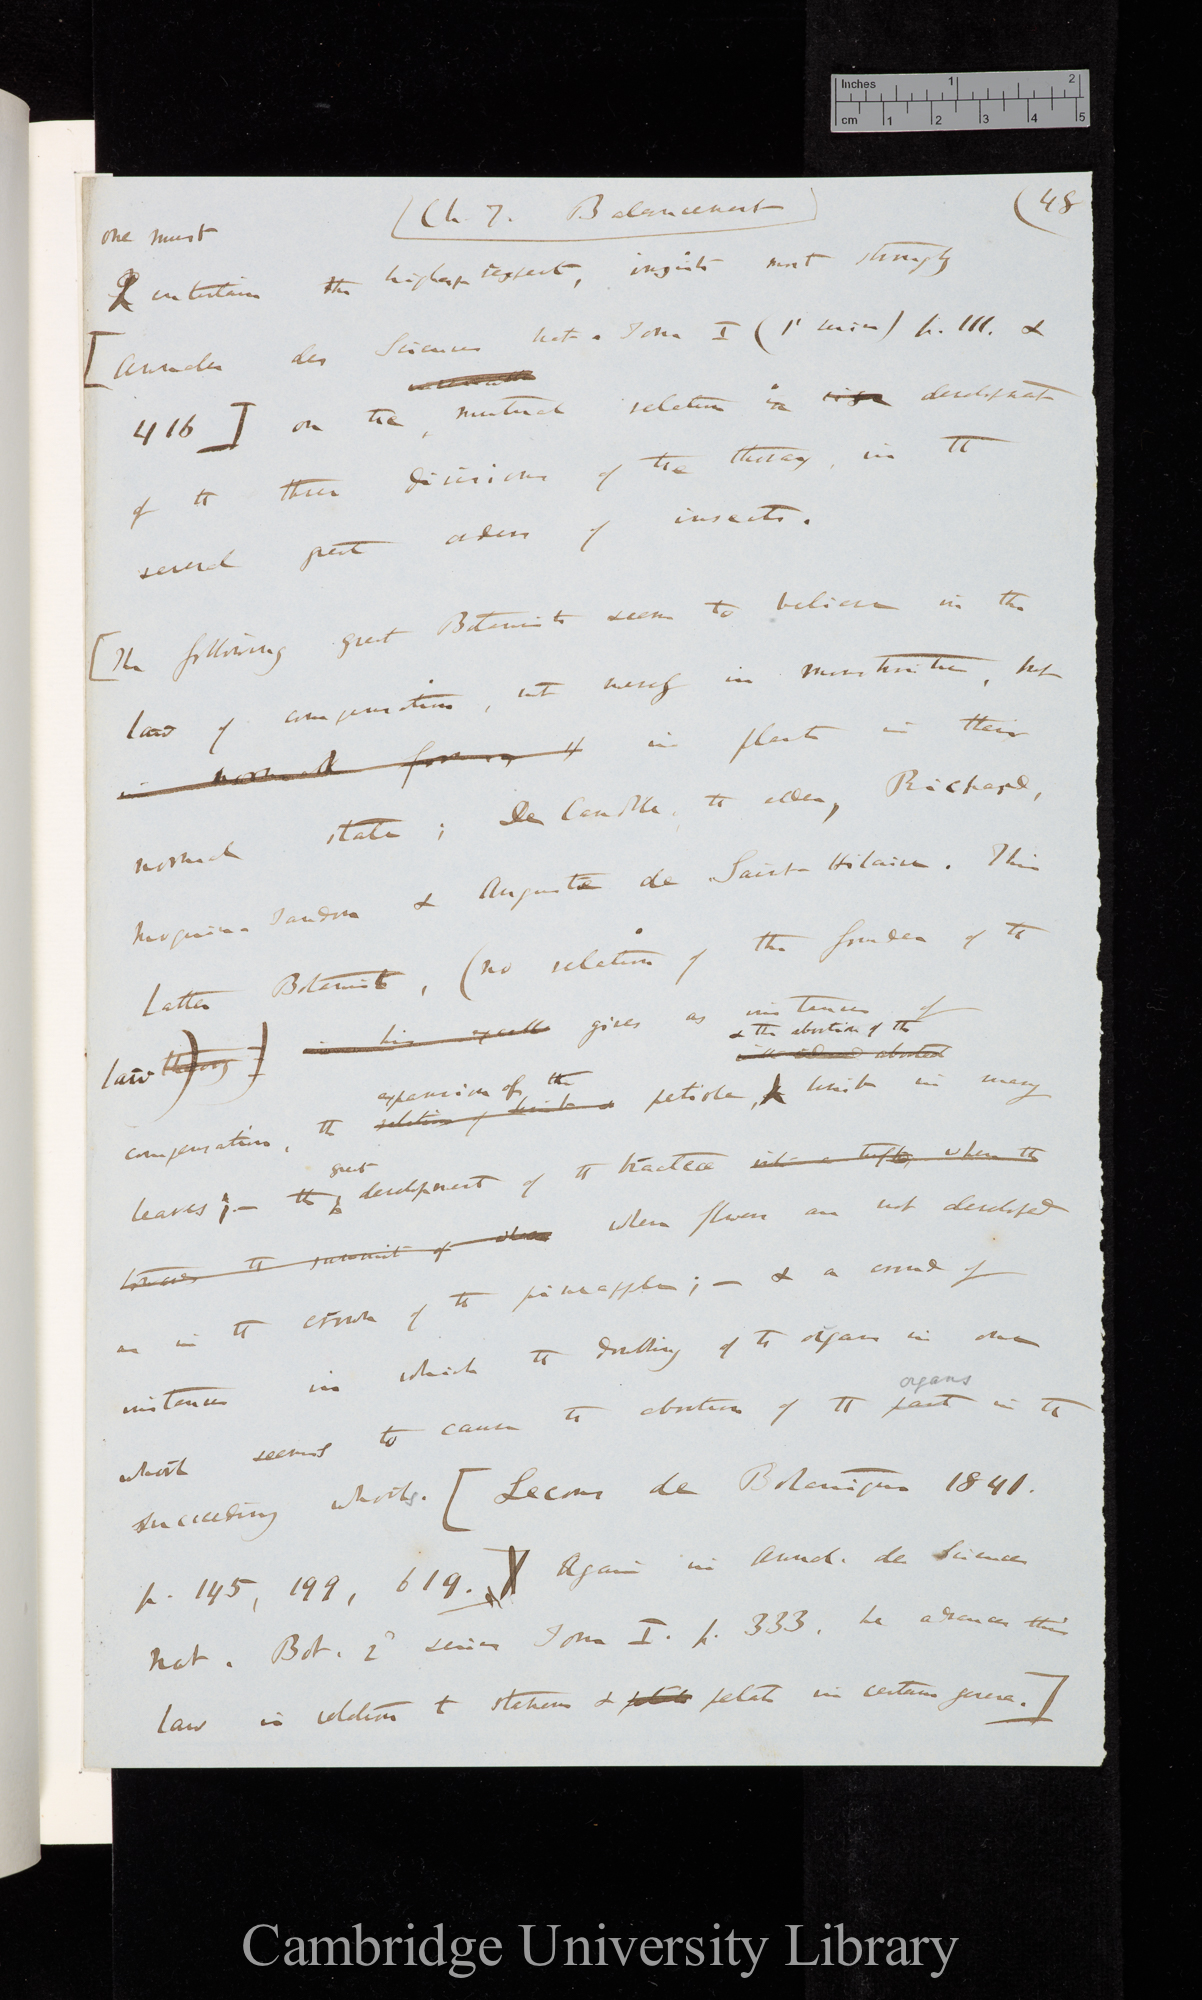 Inches 1 2
cm 1 2 3 4 5
(Ch. 7. Balancement)
(48
one must
I entertain the highest respect, insists most strongly
[Annales des Sciences Nat. Tom I (1r series) p. 111. &
416] on the, mutual relation in size development
of the three divisions of the thorax, in the
several great orders of insects.
[The following great Botanists seem to believe in the
law of compensation, not merely in monstrosities, but
in normal forms, & in plants in their
normal state; De Candolle, the elder, Richard,
Moquin-Tandon & Auguste de Saint-Hilaire. This
latter Botanist, (no relation of the founder of the
law theory)] in his excell gives as instances of
& the abortion of the
aborted
expansion of the
compensation, the relation of limb & petiole, & limb in many
great
leaves;— the development of the bracteæ into a tuft, when the
towards the summit of when when flowers are not developed
as in the crown of the pineapple;— & a crowd of
instances in which the doubling of the organs in one
organs
whorl seems to cause the abortion of the part in the
succeeding whorls. [Lecons de Botanique 1841.
p. 145, 199, 619.] Again in Annal. de Sciences
Nat. Bot. 2d series Tom I. p. 333. he advances this
law in relation to stamens & petals petals in certain genera.]
Cambridge University Library